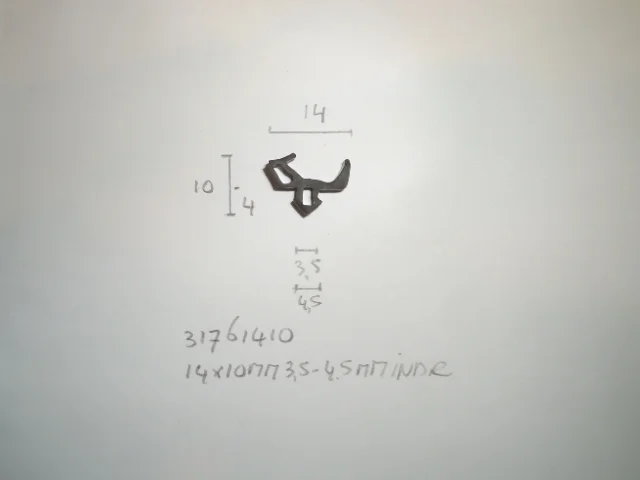 14
10
4
3,5
4,5
31761410
14x10MM 3,5-4,5MM iNDR